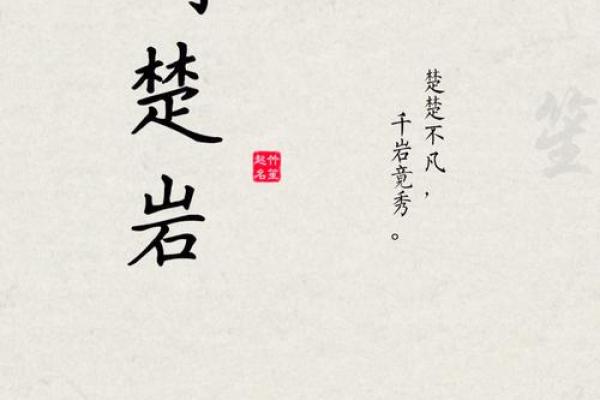 笙
楚楚不凡，
千岩竟秀。
笙
起名
楚岩